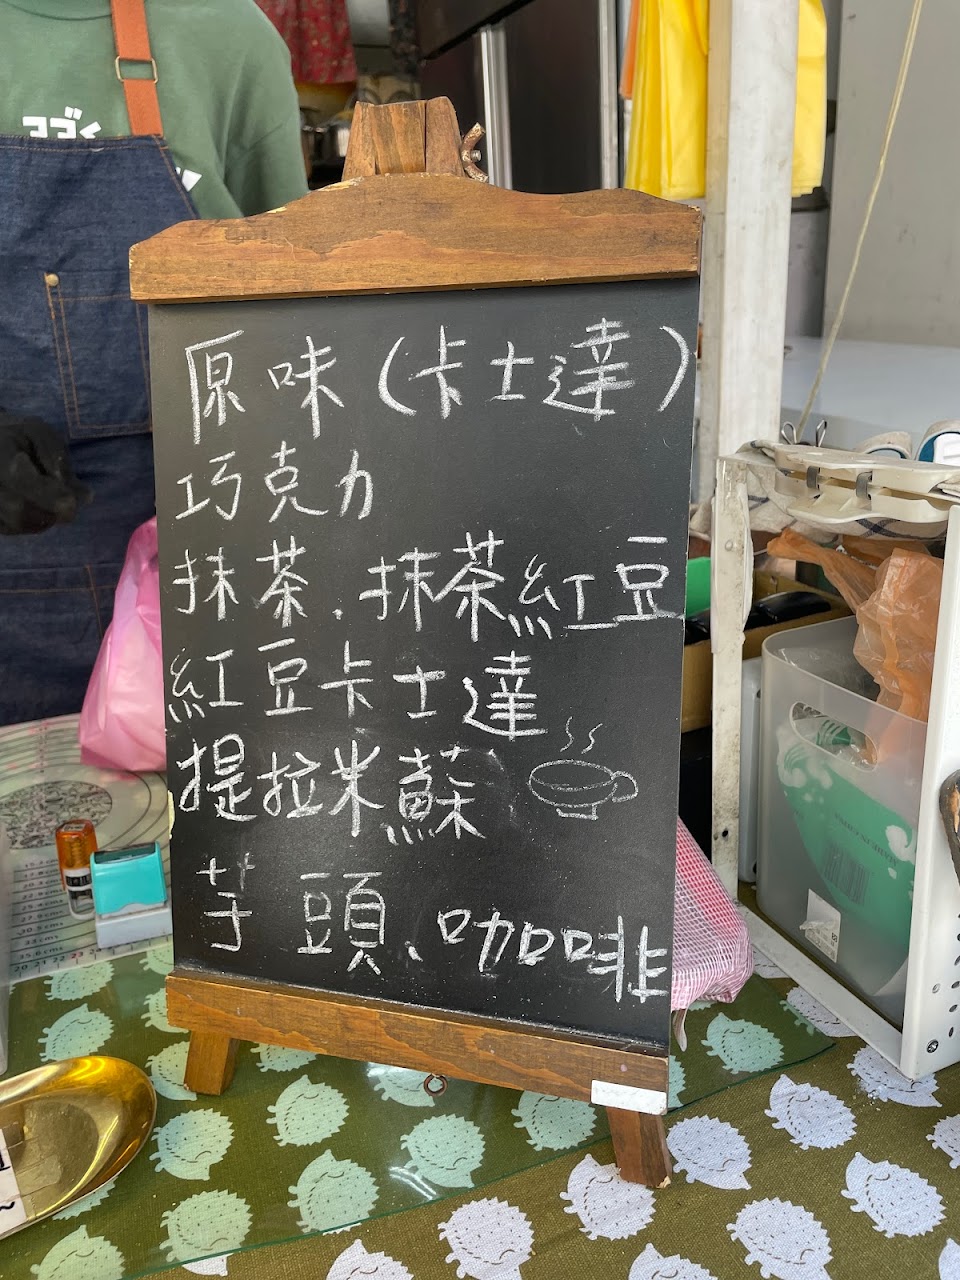 原味(卡士達)
巧克力
抹茶、抹茶紅豆
紅豆卡士達
提拉米蘇
芋頭、咖啡